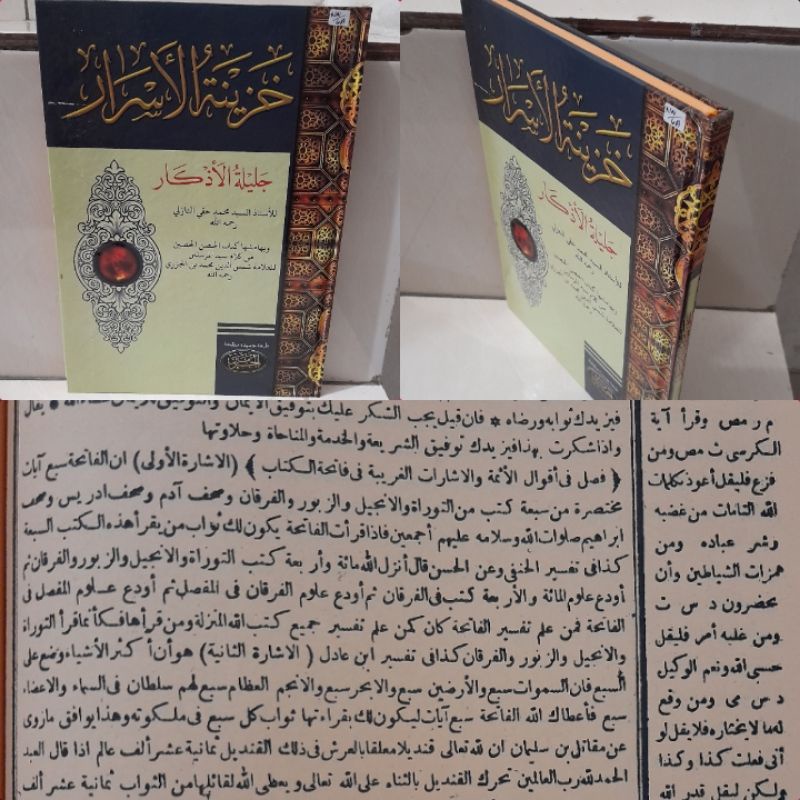 خزينة الأسرار
جليلة الأذكار
للأستاذ السيد محمد حقي النازلي
رحمه الله
وبهامشها كتاب الحصن الحصين
من كلام سيد المرسلين
للعلامة شمس الدين محمد بن الجزري
رحمه الله
خزينة الأسرار
جليلة الأذكار
فيزيدك ثوابه ورضاه * فان قيل يجب الشكر عليك بتوفيق الايمان والتوفيق
واذا شكرت بهذا فيزيدك توفيق الشريعة والخدمة والمناجاة وحلاوتها
﴿ فصل فى أقوال الأئمة والاشارات الغريبة فى فاتحة الكتاب ﴾ (الاشارة الأولى) ان الفاتحة سبع آيات
مختصرة من سبعة كتب من التوراة والانجيل والزبور والفرقان وصحف آدم وصحف ادريس وصحف
ابراهيم صلوات الله وسلامه عليهم أجمعين فاذا قرأت الفاتحة يكون لك ثواب من يقرأ هذه الكتب السبعة
كذا فى تفسير الحنفى وعن الحسن قال أنزل الله مائة وأربعة كتب التوراة والانجيل والزبور والفرقان ثم
أودع علوم المائة والأربعة كتب فى الفرقان ثم أودع علوم الفرقان فى المفصل ثم أودع علوم المفصل فى
الفاتحة فمن علم تفسير الفاتحة كان كمن علم تفسير جميع كتب الله المنزلة ومن قرأها فكأنما قرأ التوراة
والانجيل والزبور والفرقان كذا فى تفسير ابن عادل (الاشارة الثانية) هو أن أكثر الأشياء وضع على
السبع فان السموات سبع والأرضين سبع والابحر سبع والانجم العظام سبع لهم سلطان فى السماء والاعضاء
سبع فأعطاك الله الفاتحة سبع آيات ليكون لك بقراءتها ثواب كل سبع فى ملكوته وهذا يوافق ما روى
عن مقاتل بن سليمان ان لله تعالى قنديلا معلقا بالعرش فى ذلك القنديل ثمانية عشر ألف عالم اذا قال العبد
الحمد لله رب العالمين تحرك القنديل بالثناء على الله تعالى ويعطى الله لقائلها من الثواب ثمانية عشر ألف
م ر مص وقرأ آية
الكرسى ث مص ومن
فزع فليقل أعوذ بكلمات
الله التامات من غضبه
وشر عباده ومن
همزات الشياطين وأن
يحضرون د س ت
ومن غلبه أمر فليقل
حسبى الله ونعم الوكيل
د س مى ومن وقع
له ما لا يختاره فلا يقل لو
أنى فعلت كذا وكذا
ولكن ليقل قدر الله